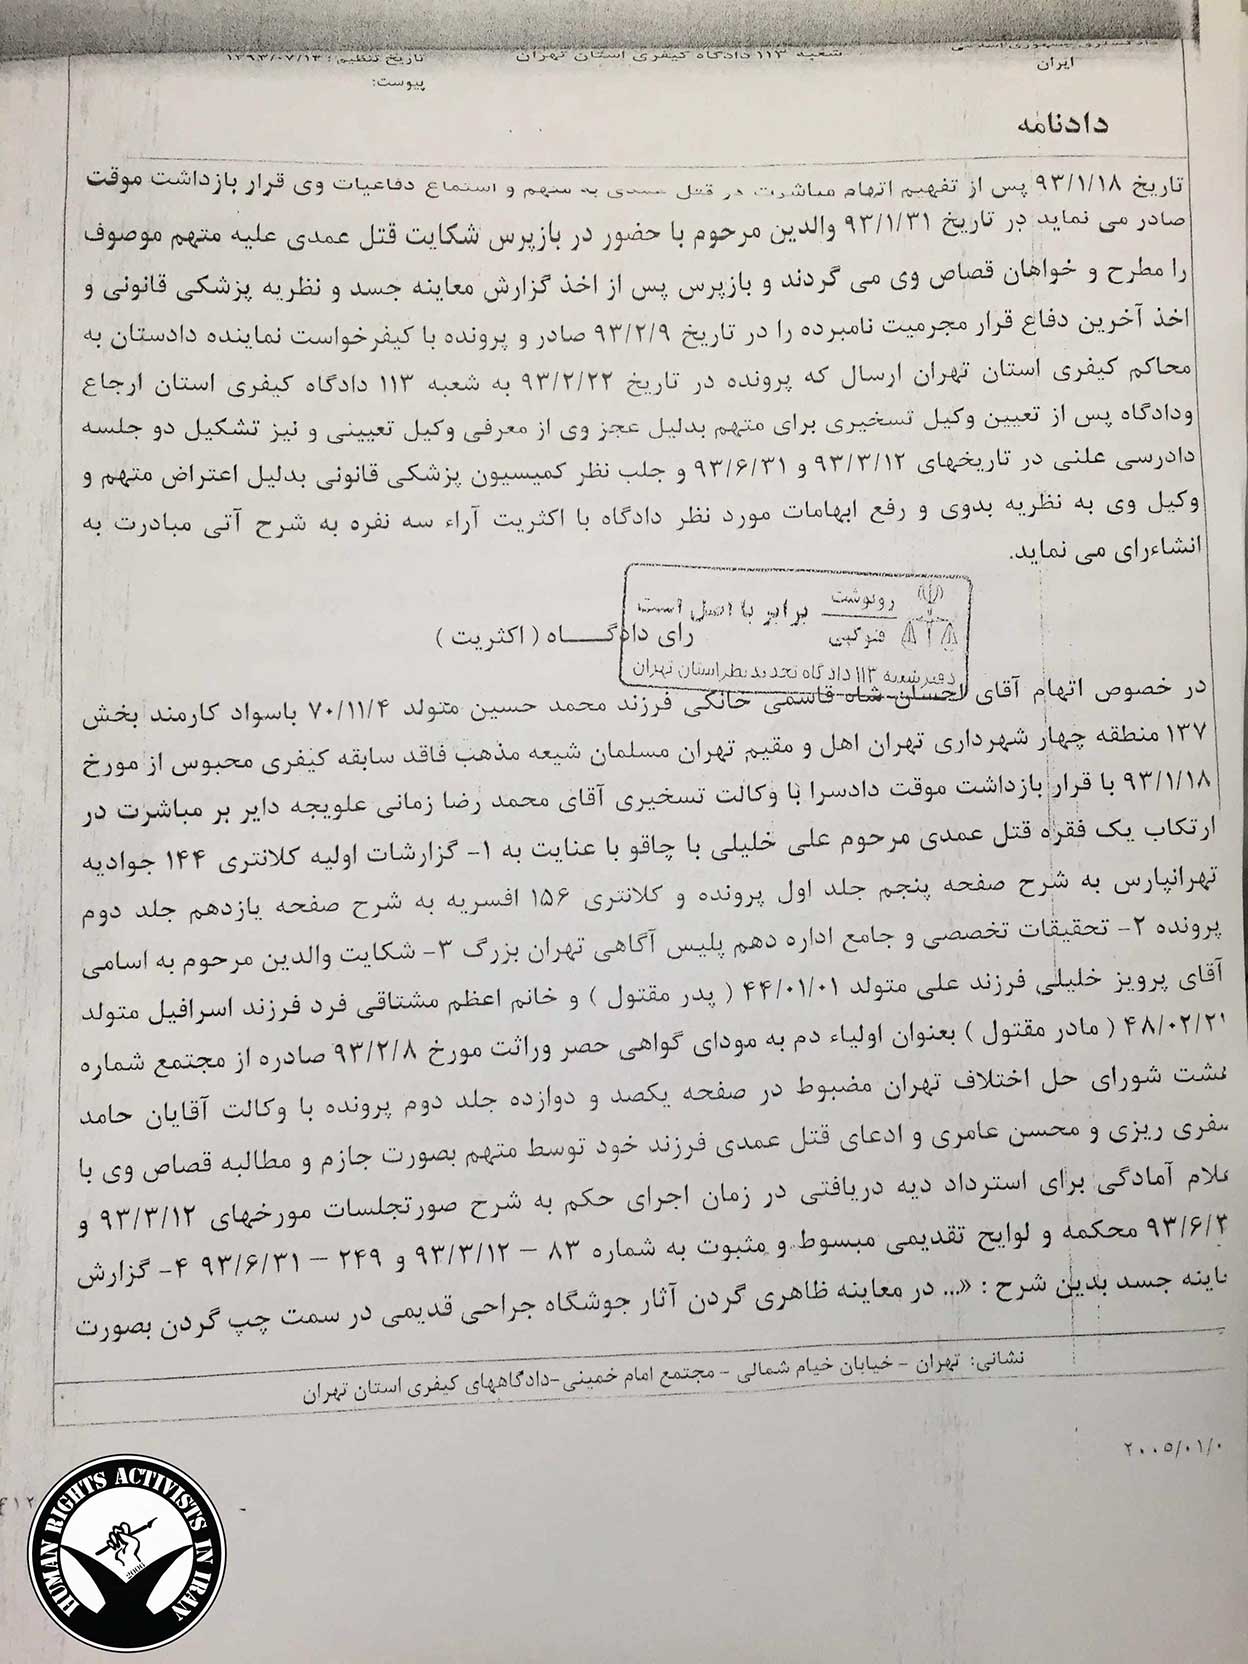 ایران
شعبه ۱۱۳ دادگاه کیفری استان تهران
تاریخ تنظیم : ۱۳۹۳/۰۷/۱۳
پیوست:
دادنامه
تاریخ ۹۳/۱/۱۸ پس از تفهیم اتهام مباشرت در قتل عمدی به متهم و استماع دفاعیات وی قرار بازداشت موقت
صادر می نماید در تاریخ ۹۳/۱/۳۱ والدین مرحوم با حضور در بازپرس شکایت قتل عمدی علیه متهم موصوف
را مطرح و خواهان قصاص وی می گردند و بازپرس پس از اخذ گزارش معاینه جسد و نظریه پزشکی قانونی و
اخذ آخرین دفاع قرار مجرمیت نامبرده را در تاریخ ۹۳/۲/۹ صادر و پرونده با کیفرخواست نماینده دادستان به
محاکم کیفری استان تهران ارسال که پرونده در تاریخ ۹۳/۲/۲۲ به شعبه ۱۱۳ دادگاه کیفری استان ارجاع
ودادگاه پس از تعیین وکیل تسخیری برای متهم بدلیل عجز وی از معرفی وکیل تعیینی و نیز تشکیل دو جلسه
دادرسی علنی در تاریخهای ۹۳/۳/۱۲ و ۹۳/۶/۳۱ و جلب نظر کمیسیون پزشکی قانونی بدلیل اعتراض متهم و
وکیل وی به نظریه بدوی و رفع ابهامات مورد نظر دادگاه با اکثریت آراء سه نفره به شرح آتی مبادرت به
انشاءرای می نماید.
رونوشت
فتوکپی
برابر با اصل است
دفتر شعبه ۱۱۳ دادگاه تجدیدنظر استان تهران
رای دادگـــــاه ( اکثریت )
در خصوص اتهام آقای احسان شاه قاسمی خانکی فرزند محمد حسین متولد ۷۰/۱۱/۴ باسواد کارمند بخش
۱۳۷ منطقه چهار شهرداری تهران اهل و مقیم تهران مسلمان شیعه مذهب فاقد سابقه کیفری محبوس از مورخ
۹۳/۱/۱۸ با قرار بازداشت موقت دادسرا با وکالت تسخیری آقای محمد رضا زمانی علویجه دایر بر مباشرت در
ارتکاب یک فقره قتل عمدی مرحوم علی خلیلی با چاقو با عنایت به ۱- گزارشات اولیه کلانتری ۱۴۴ جوادیه
تهرانپارس به شرح صفحه پنجم جلد اول پرونده و کلانتری ۱۵۶ افسریه به شرح صفحه یازدهم جلد دوم
پرونده ۲- تحقیقات تخصصی و جامع اداره دهم پلیس آگاهی تهران بزرگ ۳- شکایت والدین مرحوم به اسامی
آقای پرویز خلیلی فرزند علی متولد ۴۴/۰۱/۰۱ ( پدر مقتول ) و خانم اعظم مشتاقی فرد فرزند اسرافیل متولد
۴۸/۰۲/۲۱ ( مادر مقتول ) بعنوان اولیاء دم به مودای گواهی حصر وراثت مورخ ۹۳/۲/۸ صادره از مجتمع شماره
شورای حل اختلاف تهران مضبوط در صفحه یکصد و دوازده جلد دوم پرونده با وکالت آقایان حامد
سفری ریزی و محسن عامری و ادعای قتل عمدی فرزند خود توسط متهم بصورت جازم و مطالبه قصاص وی با
علام آمادگی برای استرداد دیه دریافتی در زمان اجرای حکم به شرح صورتجلسات مورخهای ۹۳/۳/۱۲ و
۹۳/۶/۳ محکمه و لوایح تقدیمی مبسوط و مثبوت به شماره ۸۳ – ۹۳/۳/۱۲ و ۲۴۹ – ۹۳/۶/۳۱ ۴- گزارش
اینه جسد بدین شرح : «... در معاینه ظاهری گردن آثار جوشگاه جراحی قدیمی در سمت چپ گردن بصورت
نشانی: تهران - خیابان خیام شمالی - مجتمع امام خمینی-دادگاههای کیفری استان تهران
۲۰۰۵/۰۱/۰
۴۱۲
HUMAN RIGHTS ACTIVISTS IN IRAN
2006